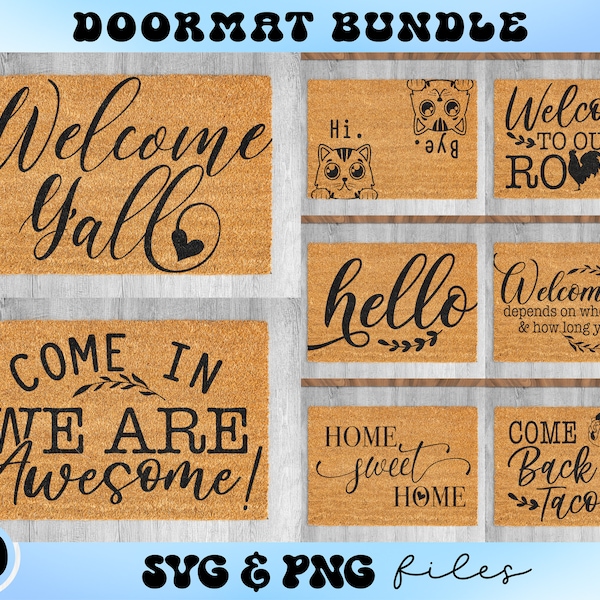 DOORMAT BUNDLE
Welcome
Y'all
Hi.
Bye.
Welco
TO OU
RO
hello
Welcom
depends on wh
& how long y
COME IN
WE ARE
Awesome!
HOME
sweet
HOME
COME
Back
Taco
SVG & PNG files